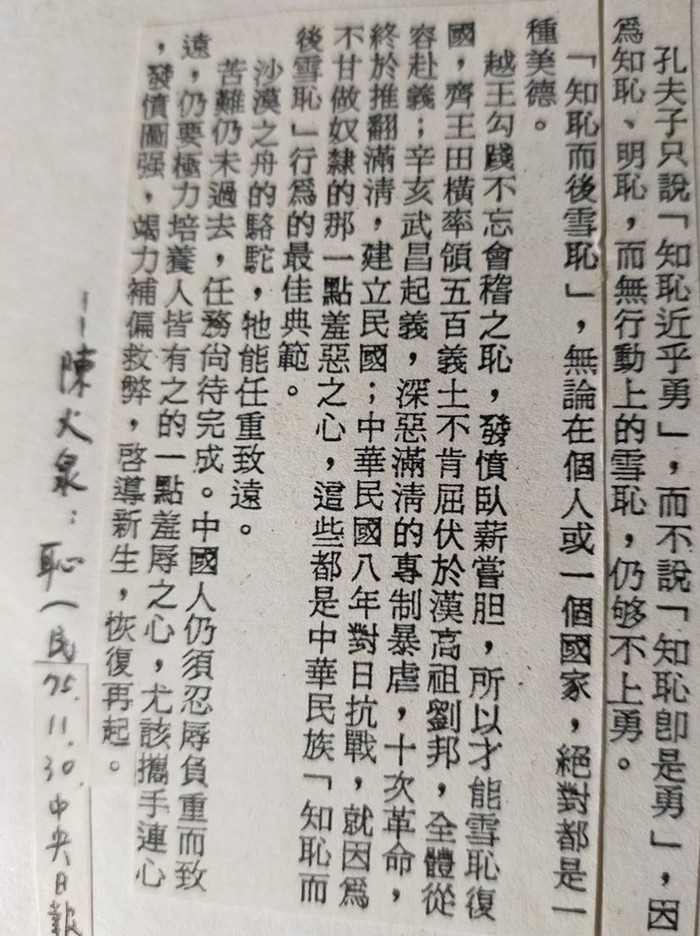 孔夫子只說「知恥近乎勇」，而不說「知恥卽是勇」，因
爲知恥、明恥，而無行動上的雪恥，仍够不上勇。
「知恥而後雪恥」，無論在個人或一個國家，絕對都是一
種美德。
越王勾踐不忘會稽之恥，發憤臥薪嘗胆，所以才能雪恥復
國，齊王田橫率領五百義士不肯屈伏於漢高祖劉邦，全體從
容赴義；辛亥武昌起義，深惡滿淸的專制暴虐，十次革命，
終於推翻滿淸，建立民國；中華民國八年對日抗戰，就因爲
不甘做奴隸的那一點羞惡之心，這些都是中華民族「知恥而
後雪恥」行爲的最佳典範。
沙漠之舟的駱駝，牠能任重致遠。
苦難仍未過去，任務尙待完成。中國人仍須忍辱負重而致
遠，仍要極力培養人皆有之的一點羞辱之心，尤該攜手連心
，發憤圖强，竭力補偏救弊，啓導新生，恢復再起。
——陳火泉：恥（民75.11.30.中央日報